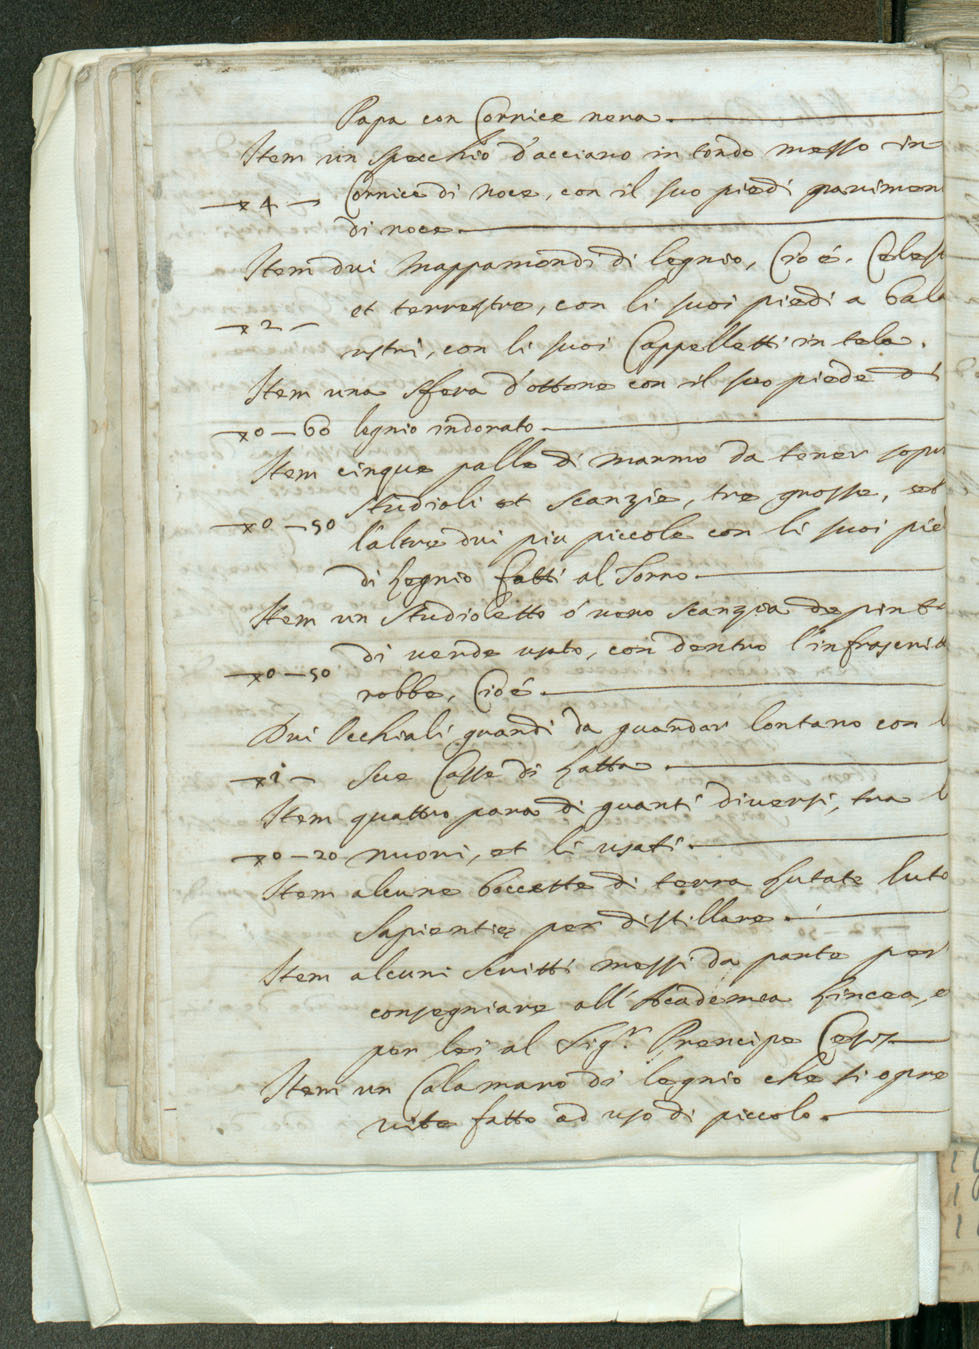 Papa con Cornice nera.
Item un specchio d'acciaro in tondo messo in
—x4— Cornice di noce, con il suo piedi parimen
di noce.
Item dui Mappamondi di legnio, Cioé. Celest
et terrestre, con li suoi piedi a bala
—x2—
ustri, con li suoi Cappelletti in tela.
Item una sfera d'ottone con il suo piede di
—x0—60 legnio indorato.
Item cinque palle di marmo da tener sopr
studioli et scanzie, tre grosse, et
—x0—50
l'altre dui piu piccole con li suoi pie
di legnio fatti al torno.
Item un studioletto ó vero scanzia depinta
di verde usato, con dentro l'infrascritt
—x0—50
robbe, Cioé.
Dui Occhiali grandi da guardar lontano con l
—x1— sue Casse di latta.
Item quattro para di guanti diversi, tra l
—x0—20 nuovi, et li usati.
Item alcune boccette di terra lutate luto
sapientię per distillare.
Item alcuni scritti messi da parte per
consegniare all'Academia Lincea, e
per lei al Sig.r Prencipe Cesis
Item un Calamaro di legnio che si opre
vite fatto ad uso di piccolo.